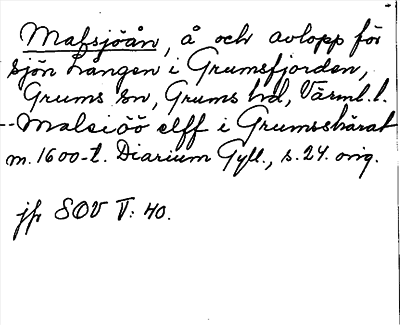 Mafsjöån, å och avlopp för
sjön Lången i Grumsfjorden,
Grums sn, Grums hd, Värml. l.
-- Malsiöö elff i Grumshärat
m. 1600-t. Diarium Gyll., s. 24. orig.
jfr SOV V: 40.